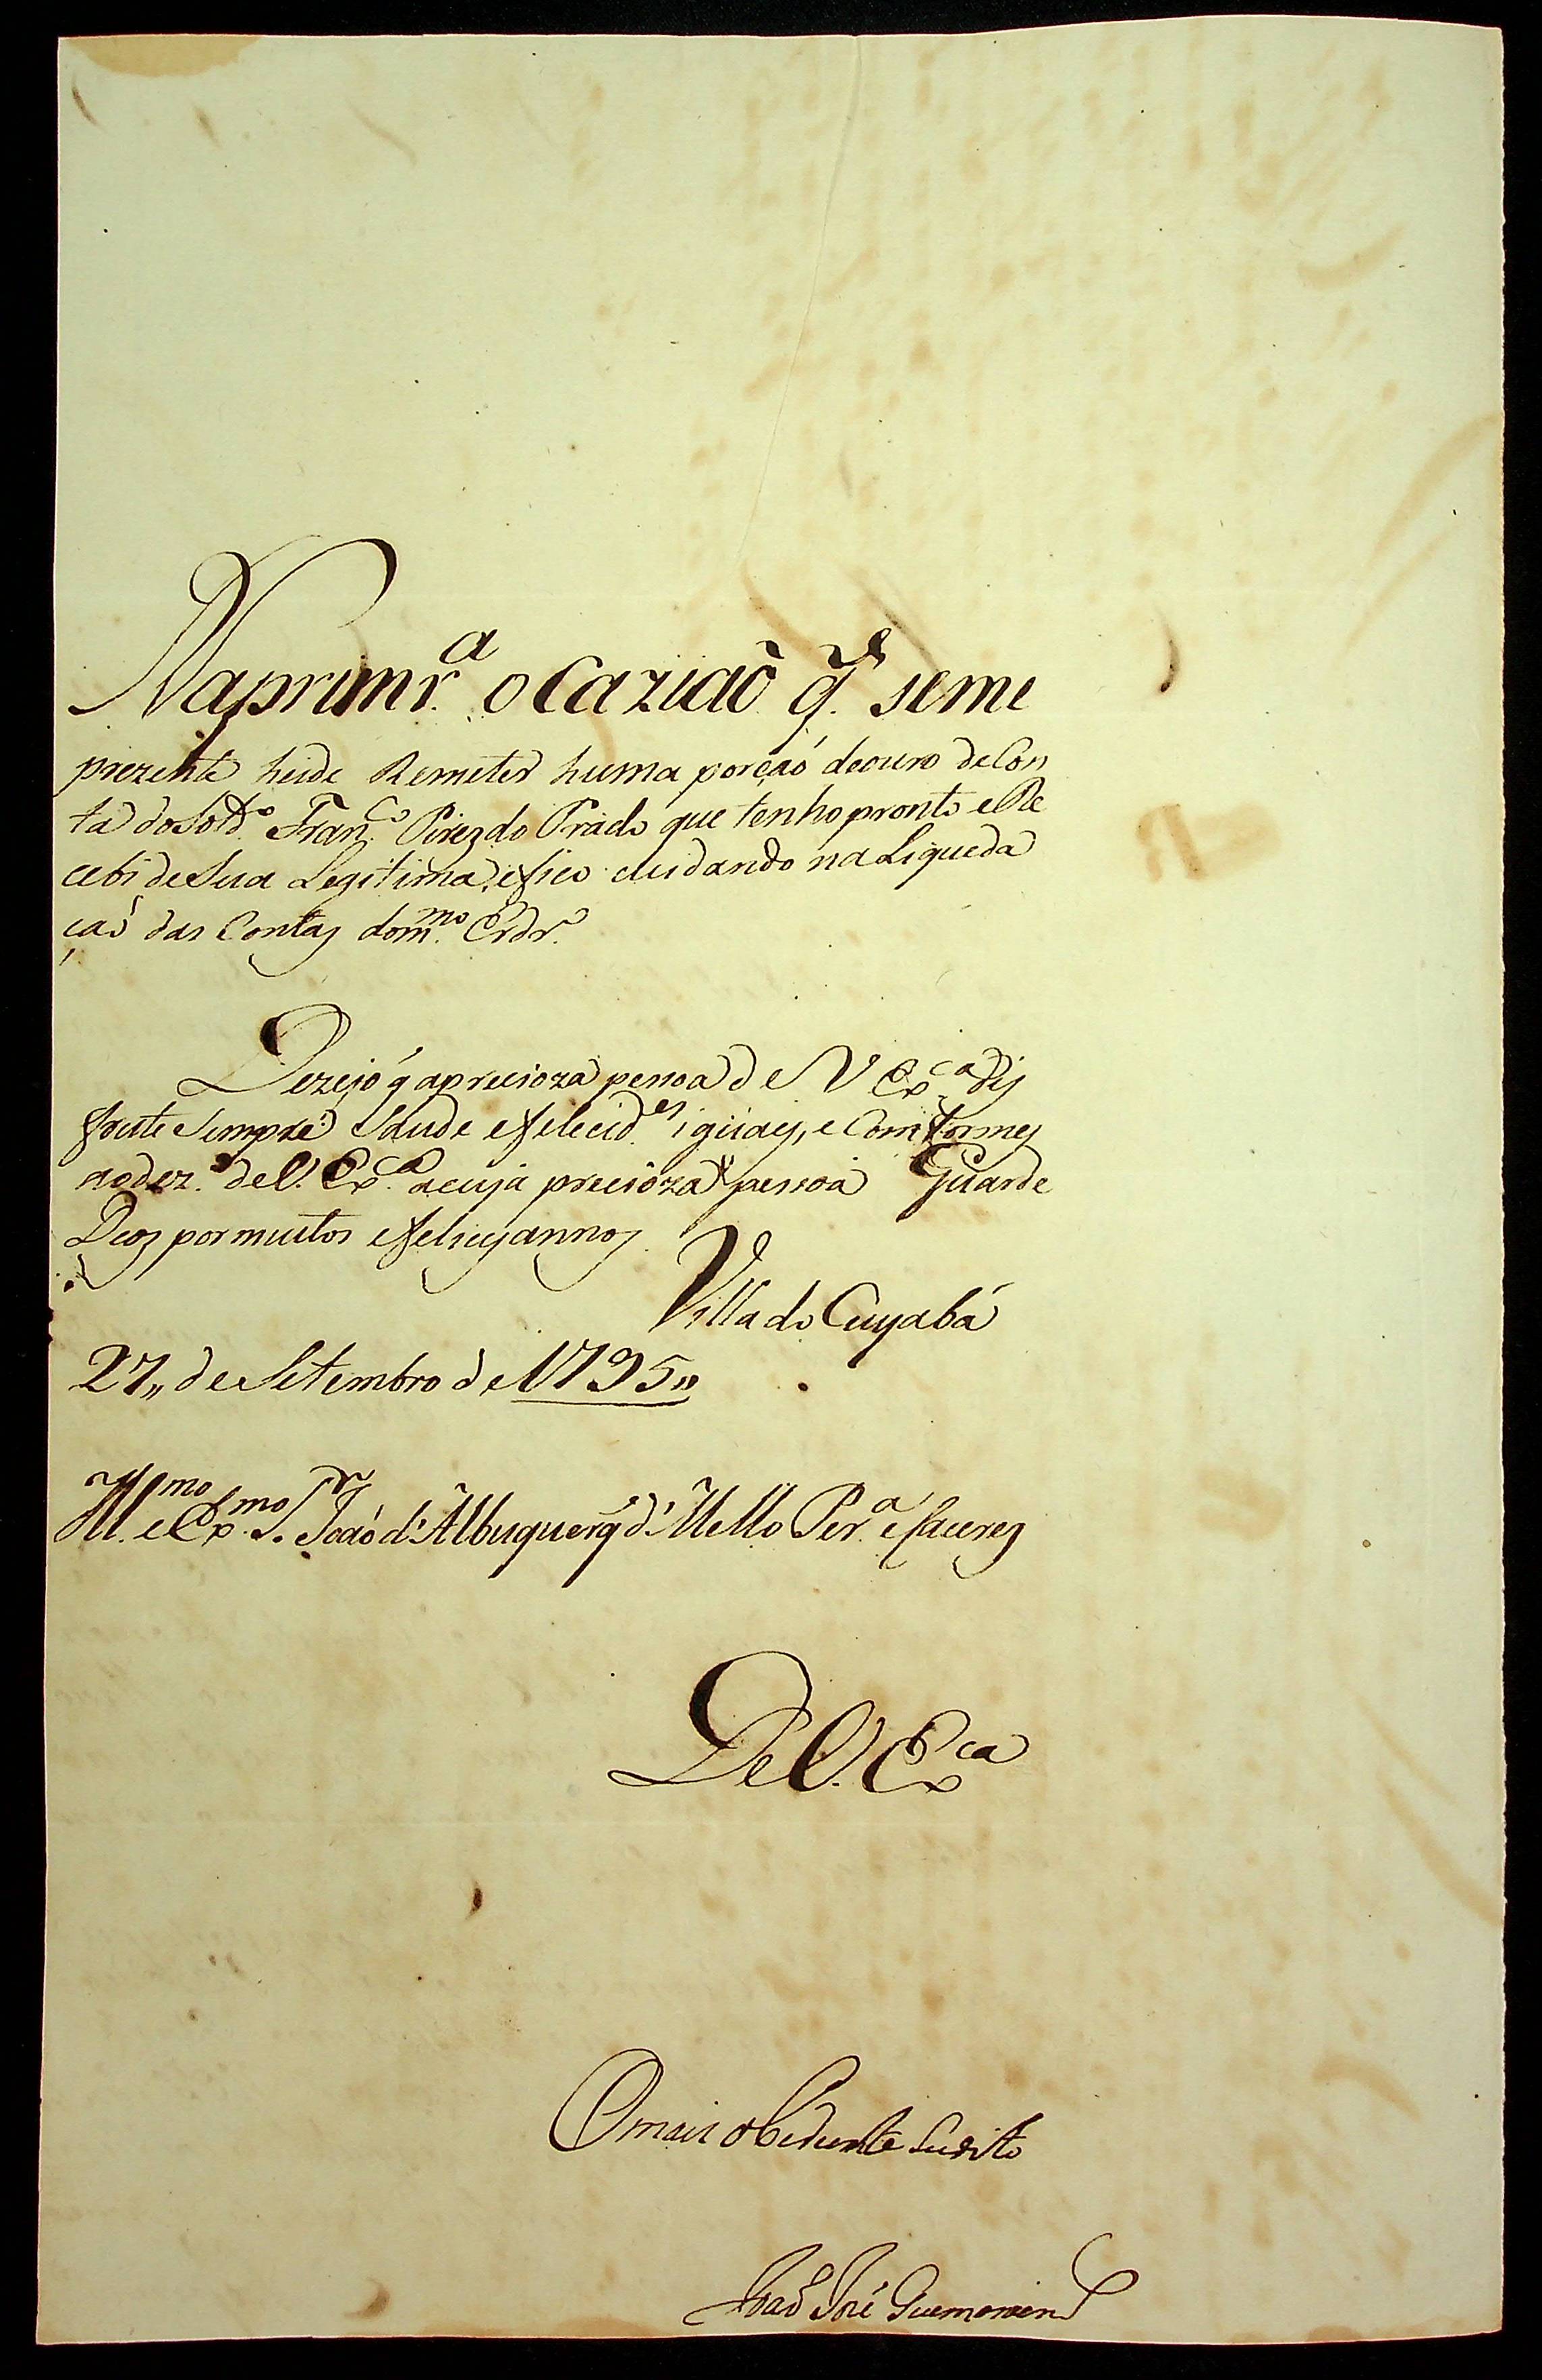 Naprimr.ª ocaziaõ q.̃ seme
prezente heide Remeter huma porçaó deouro deCon
ta doSold.º Fran.co Pirez do Prado que tenho pronto e Re
cebi deSua Legitima, efico cuidando na Liqueda
çaó das Contas dom.mo Érdr.º
Dezejo q̃ aprecioza pessoa de V Ex.ca dis
frute Sempre Saude efelecid.es iguaes, e Comformes
aodez.º deV. Ex.ca acuja precioza pessoa Guarde
Deos por muitos efelices annos
Villa do Cuyabá
27,, de Setembro de 1795,,
Ill.mo e Ex.mo S.r Joaó d'Albuquerq̃ d'Mello Per.ª e Caceres
DeV. Exca
Omais obediente Sudito
Joaõ José